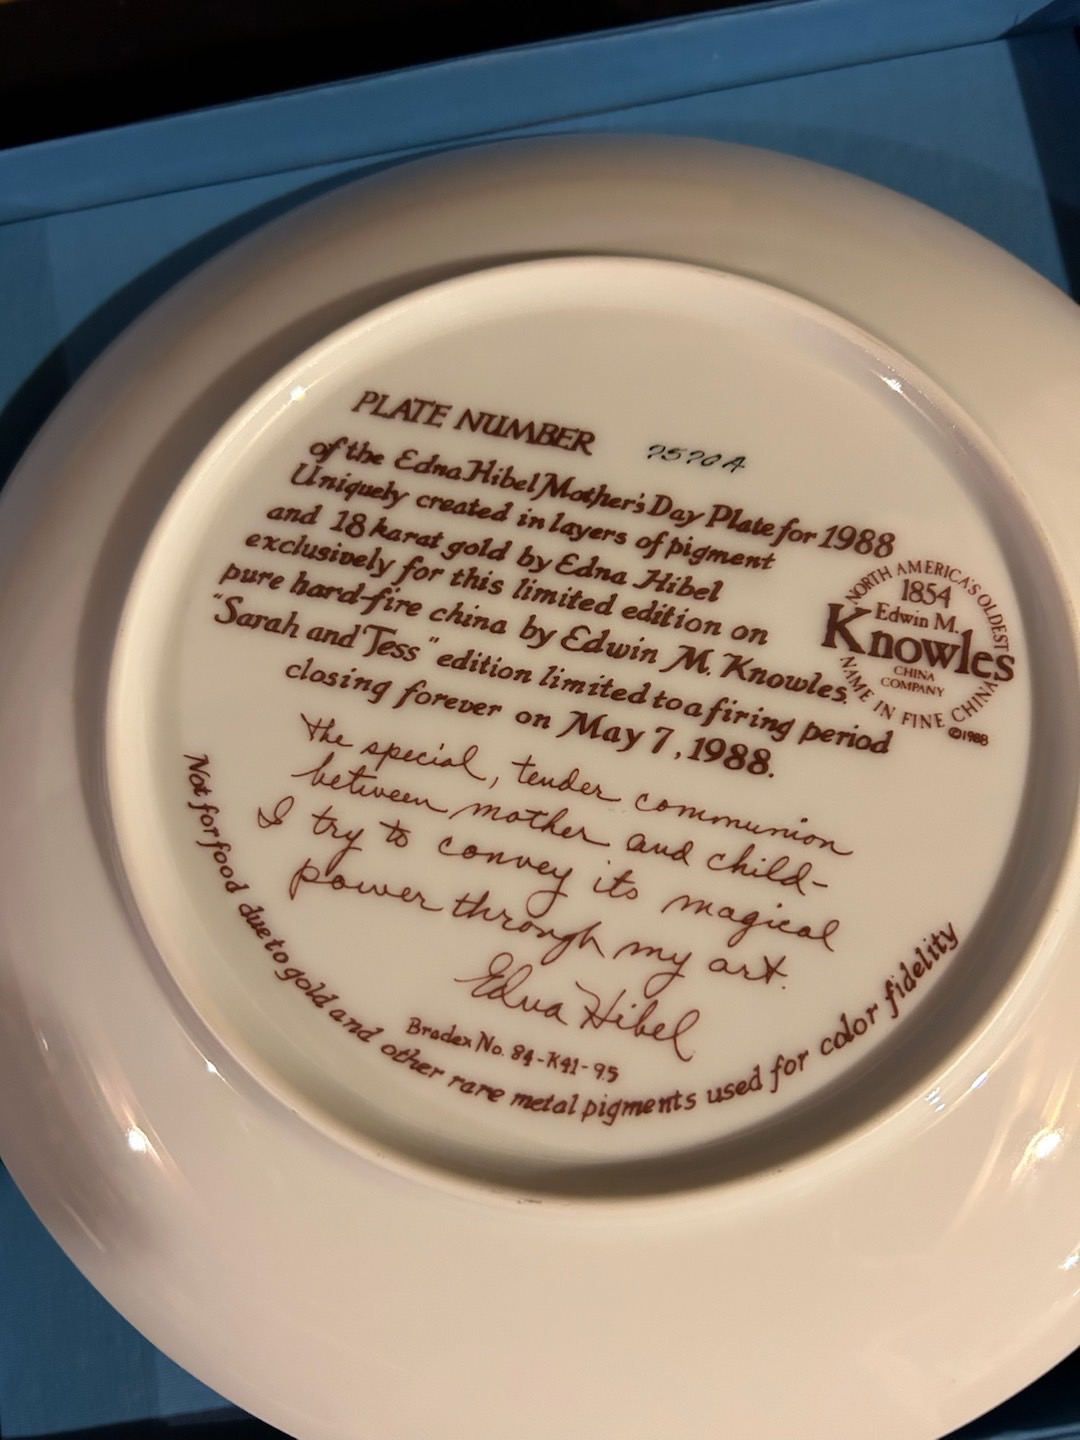 PLATE NUMBER 9590A
of the Edna Hibel Mother's Day Plate for 1988
Uniquely created in layers of pigment
and 18 karat gold by Edna Hibel
exclusively for this limited edition on
pure hard-fire china by Edwin M. Knowles.
"Sarah and Tess" edition limited to a firing period
closing forever on May 7, 1988.
NORTH AMERICA'S OLDEST
1854
Edwin M.
Knowles
CHINA
COMPANY
NAME IN FINE CHINA
©1988
The special, tender communion
between mother and child-
I try to convey its magical
power through my art.
Edna Hibel
Bradex No. 84-K41-9.5
Not for food due to gold and other rare metal pigments used for color fidelity